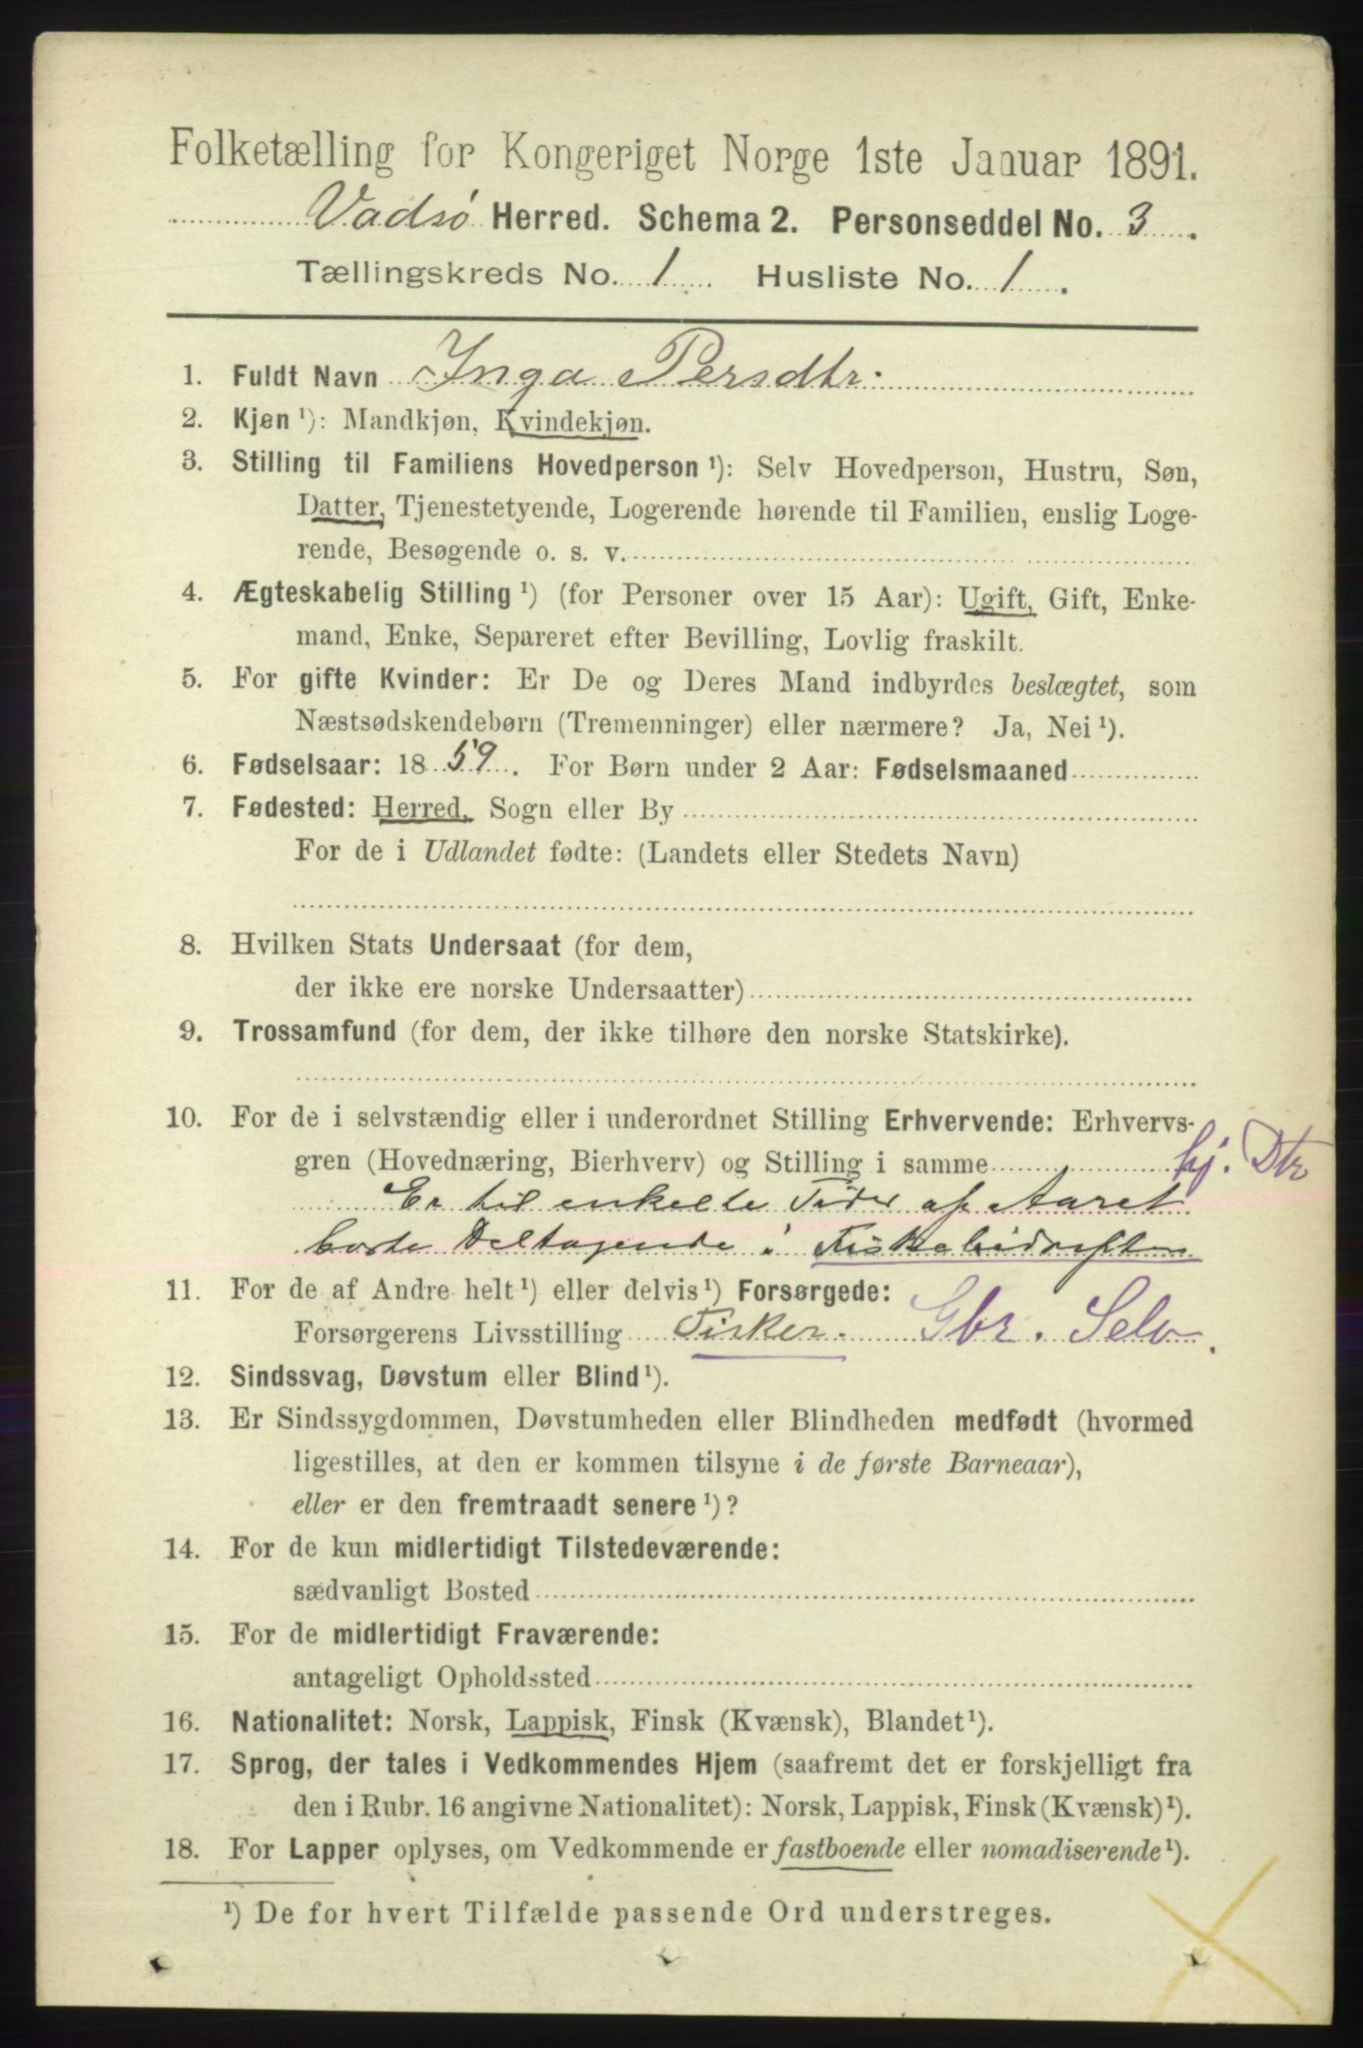 Folketælling for Kongeriget Norge 1ste Januar 1891.
Vadsø Herred. Schema 2. Personseddel No. 3.
Tællingskreds No. 1 Husliste No. 1.
1. Fuldt Navn Inga Persdtr.
2. Kjøn ¹): Mandkjøn, Kvindekjøn.
3. Stilling til Familiens Hovedperson ¹): Selv Hovedperson, Hustru, Søn,
Datter, Tjenestetyende, Logerende hørende til Familien, enslig Loge-
rende, Besøgende o. s. v.
4. Ægteskabelig Stilling ¹) (for Personer over 15 Aar): Ugift, Gift, Enke-
mand, Enke, Separeret efter Bevilling, Lovlig fraskilt.
5. For gifte Kvinder: Er De og Deres Mand indbyrdes beslægtet, som
Næstsødskendebørn (Tremenninger) eller nærmere? Ja, Nei ¹).
6. Fødselsaar: 1859. For Børn under 2 Aar: Fødselsmaaned
7. Fødested: Herred, Sogn eller By
For de i Udlandet fødte: (Landets eller Stedets Navn)
8. Hvilken Stats Undersaat (for dem,
der ikke ere norske Undersaatter)
9. Trossamfund (for dem, der ikke tilhøre den norske Statskirke).
10. For de i selvstændig eller i underordnet Stilling Erhvervende: Erhvervs-
gren (Hovednæring, Bierhverv) og Stilling i samme hj. Dtr
Er til enkelte Tider af Aaret
borte Deltagende i Fiskebedriften
11. For de af Andre helt ¹) eller delvis ¹) Forsørgede:
Forsørgerens Livsstilling Fisker. Gbr. Selv.
12. Sindssvag, Døvstum eller Blind ¹).
13. Er Sindssygdommen, Døvstumheden eller Blindheden medfødt (hvormed
ligestilles, at den er kommen tilsyne i de første Barneaar),
eller er den fremtraadt senere ¹)?
14. For de kun midlertidigt Tilstedeværende:
sædvanligt Bosted
15. For de midlertidigt Fraværende:
antageligt Opholdssted
16. Nationalitet: Norsk, Lappisk, Finsk (Kvænsk), Blandet ¹).
17. Sprog, der tales i Vedkommendes Hjem (saafremt det er forskjelligt fra
den i Rubr. 16 angivne Nationalitet): Norsk, Lappisk, Finsk (Kvænsk) ¹).
18. For Lapper oplyses, om Vedkommende er fastboende eller nomadiserende ¹).
¹) De for hvert Tilfælde passende Ord understreges.